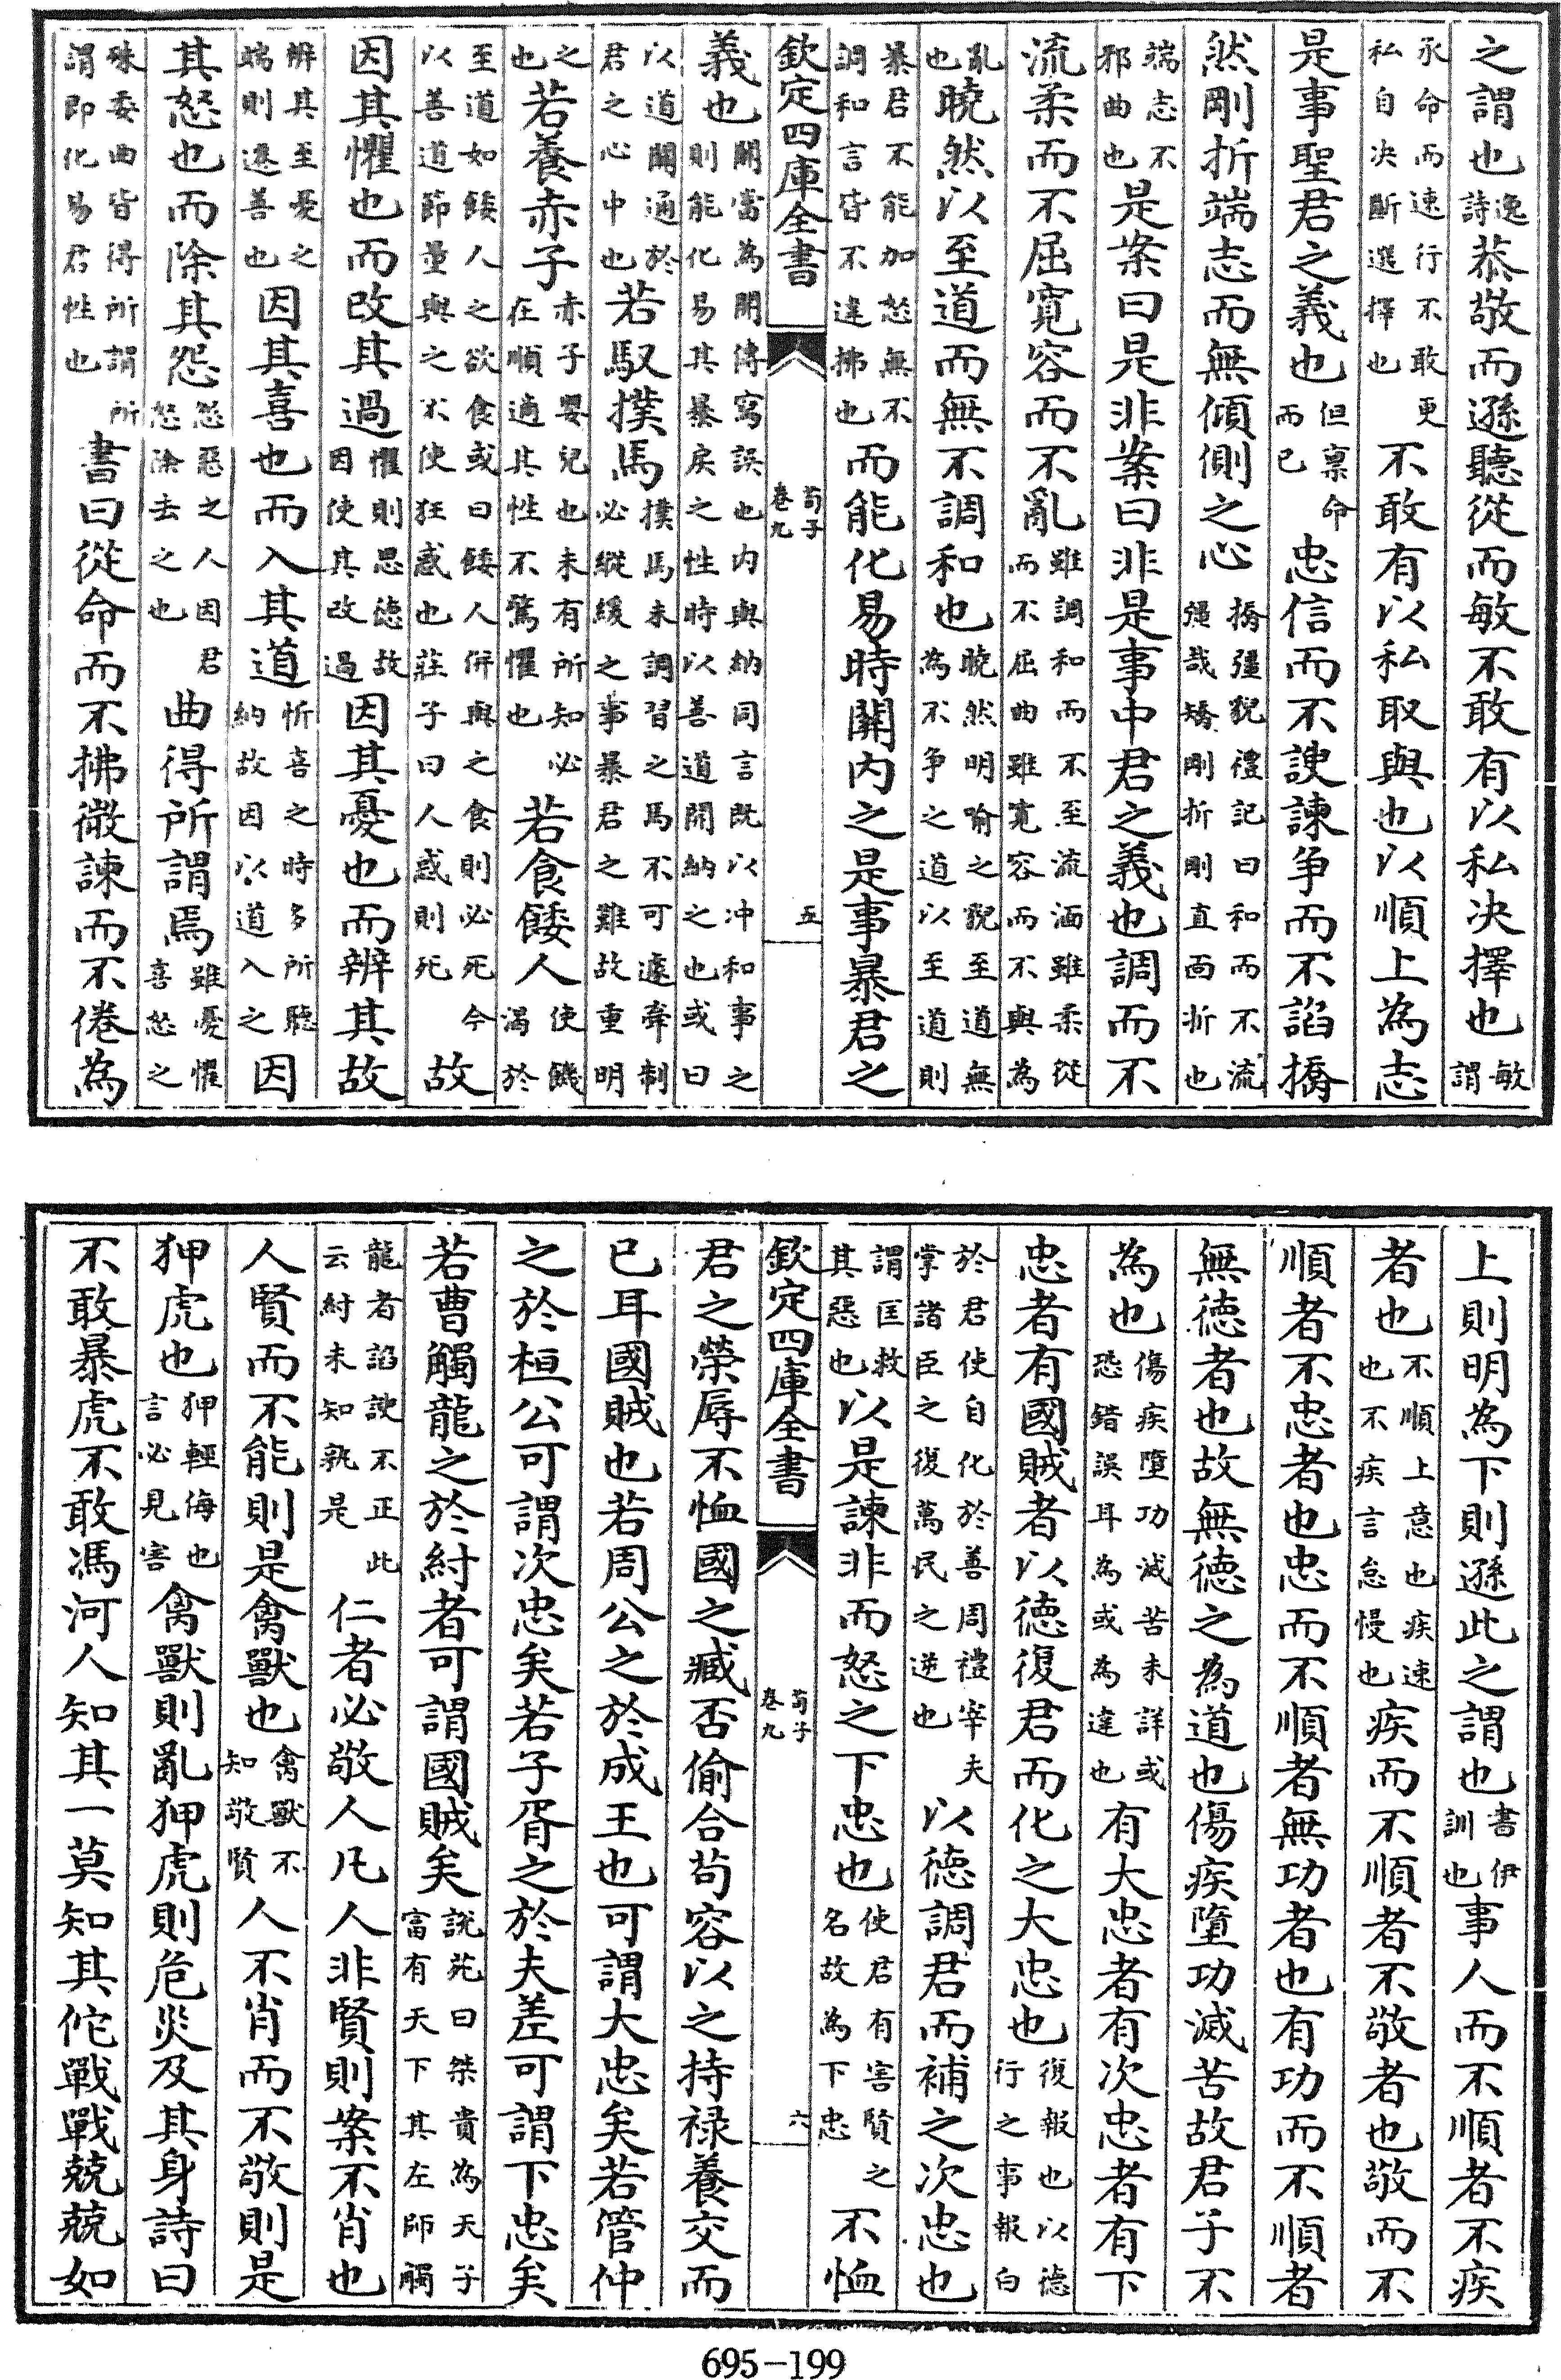 之謂也逸詩恭敬而遜聽從而敏不敢有以私決擇也敏謂
承命而速行不敢更私自決斷選擇也不敢有以私取與也以順上為志
是事聖君之義也但禀命而已忠信而不諛諫争而不諂撟
然剛折端志而無傾側之心撟彊貌禮記曰和而不流彊哉矯剛折剛直面折也
端志不邪曲也是案曰是非案曰非是事中君之義也調而不
流柔而不屈寛容而不亂雖調和而不至流湎雖柔從而不屈曲雖寛容而不與為
亂也曉然以至道而無不調和也曉然明喻之貌至道無為不争之道以至道則
暴君不能加怒無不調和言皆不違拂也而能化易時關内之是事暴君之
欽定四庫全書 荀子卷九 五
義也關當為開傳寫誤也内與納同言既以冲和事之則能化易其暴戾之性時以善道開納之也或曰
以道關通於君之心中也若馭撲馬撲馬未調習之馬不可遽牽制必縱緩之事暴君之難故重明
之也若養赤子赤子嬰兒也未有所知必在順適其性不驚懼也若食餧人使飢渴於
至道如餧人之欲食或曰餧人併與之食則必死今以善道節量與之不使狂惑也莊子曰人惑則死故
因其懼也而改其過懼則思德故因使其改過因其憂也而辨其故
辨其至憂之端則遷善也因其喜也而入其道忻喜之時多所聽納故因以道入之因
其怒也而除其怨怨惡之人因君怒除去之也曲得所謂焉雖憂懼喜怒之
殊委曲皆得所謂所謂即化易君性也書曰從命而不拂微諫而不倦為
上則明為下則遜此之謂也書伊訓也事人而不順者不疾
者也不順上意也疾速也不疾言怠慢也疾而不順者不敬者也敬而不
順者不忠者也忠而不順者無功者也有功而不順者
無德者也故無德之為道也傷疾墮功滅苦故君子不
為也傷疾墮功滅苦未詳或恐錯誤耳為或為違也有大忠者有次忠者有下
忠者有國賊者以德復君而化之大忠也復報也以德行之事報白
於君使自化於善周禮宰夫掌諸臣之復萬民之逆也以德調君而補之次忠也
謂匡救其惡也以是諫非而怒之下忠也使君有害賢之名故為下忠不恤
欽定四庫全書 荀子卷九 六
君之榮辱不恤國之臧否偷合茍容以之持禄養交而
已耳國賊也若周公之於成王也可謂大忠矣若管仲
之於桓公可謂次忠矣若子胥之於夫差可謂下忠矣
若曹觸龍之於紂者可謂國賊矣説苑曰桀貴為天子富有天下其左師觸
龍者諂諛不正此云紂未知孰是仁者必敬人凡人非賢則案不肖也
人賢而不能則是禽獸也禽獸不知敬賢人不肖而不敬則是
狎虎也狎輕侮也言必見害禽獸則亂狎虎則危災及其身詩曰
不敢暴虎不敢馮河人知其一莫知其佗戰戰兢兢如
695-199